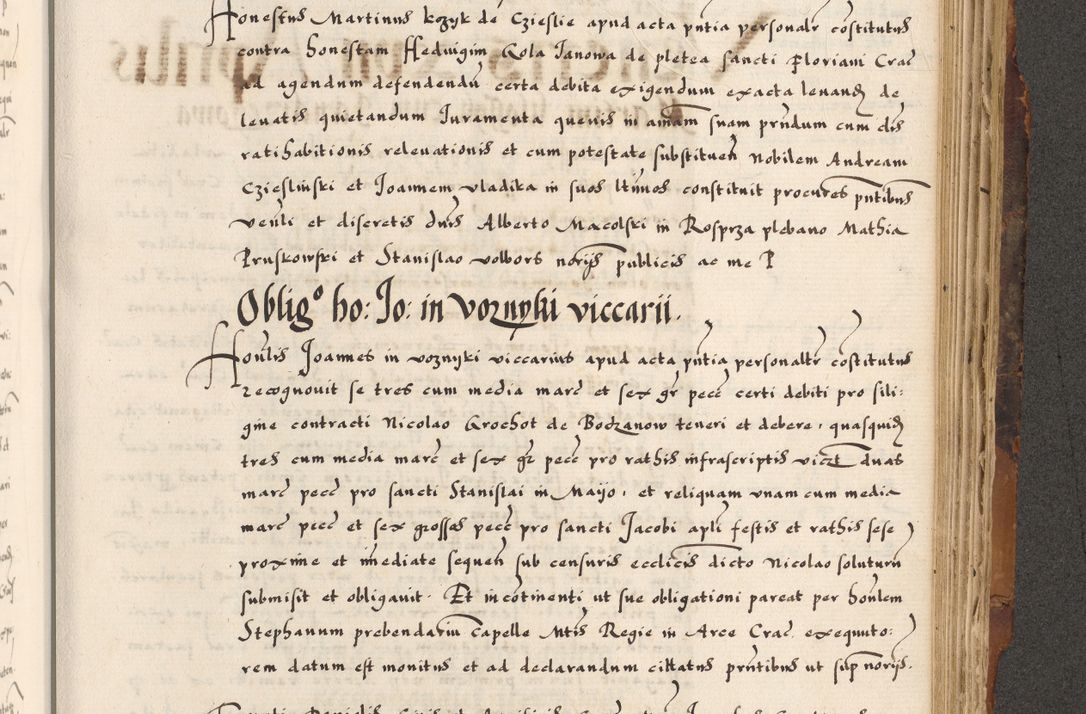 Honestus Martinus kozyk de Czieslie apud acta pñtia personalr cõstitutus
contra honestam Heduigim Gola Janowa de pletea sancti Floriani Crac̃
ad agendum defendendũ certa debita exigendum exacta leuand de
leuatis quietandum Juramenta queuis in aĩam suam prñdum cum clis
ratihabitionis releuationis et cum potestate substituen̄ Nobilem Andream
Czieslinski et Joannem vladika in suos ltĩmos constituit procures pñtibus
veñli et discretis dñis Alberto Macolski in Rosprza plebano Mathia
Pruskowski et Stanislao volbors norijs publicis ac me P
Obligo ho: Jo: in voznyki viccarii.
Hoñlis Joannes in voznyki viccarius apud acta pñtia personaltr cõstitutus
recognouit se tres cum media marc̃ et sex gr pecc̃ certi debiti pro sili:
gine contracti Nicolao Grochot de Bodzanow teneri et debere, quasquid
tres cum media marc̃ et sex gr pecc̃ pro rathis infrascriptis viczt duas
marc̃ pecc̃ pro sancti Stanislai in Maijo, et reliquam vnam cum media
marc̃ pecc̃ et sex grosses pecc̃ pro sancti Jacobi apli festis et rathis sese
proxime et im̃ediate sequen̄ sub censuris ecclicis dicto Nicolao soluturũ
submisit et obligauit. Et incõtinenti ut sue obligationi pareat per hoñlem
Stephanum prebendariũ Capelle Mtis Regie in Arce Crac̃ exequuto:
rem datum est monitus et ad declarandum cittatus prñtibus ut sup norijs.